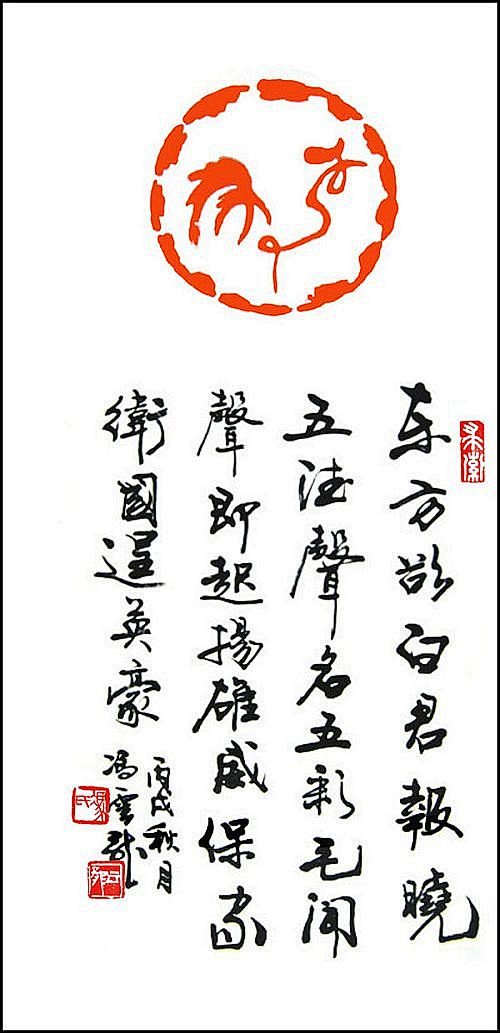 东方欲白君報曉
五德聲名五彩毛闻
聲即起揚雄威保家
衛國逞英豪
丙戌秋月
馮雲龍